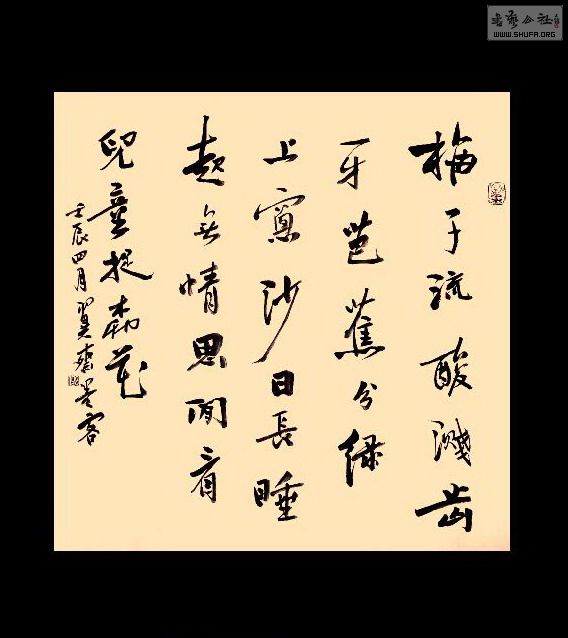 書藝公社
WWW.SHUFA.ORG
梅子流酸濺齿
牙芭蕉分綠
上窗沙日長睡
起無情思閒看
兒童捉柳花
壬辰四月翼齋客